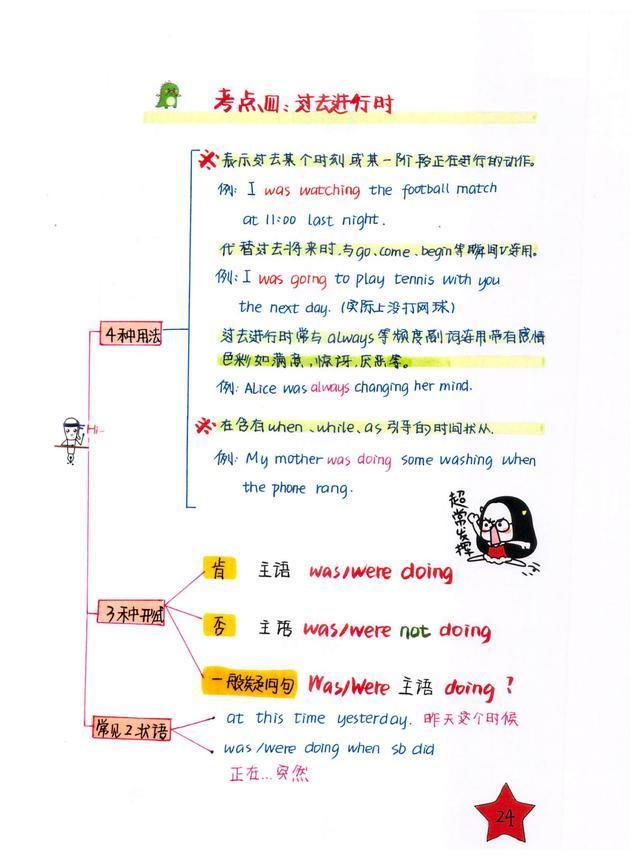 考点Ⅲ:过去进行时
※表示过去某个时刻或某一阶段正在进行的动作。
例: I was watching the football match
at 11:00 last night.
代替过去将来时,与go、come、begin等瞬间V连用。
例: I was going to play tennis with you
the next day. (实际上没打网球)
过去进行时常与always等频度副词连用带有感情
色彩如满意,惊讶,厌恶等。
例: Alice was always changing her mind.
※在含有when、while、as引导的时间状从.
例: My mother was doing some washing when
the phone rang.
4种用法
Hi~
超常发挥
肯 主语 was/were doing
否 主语 was/were not doing
一般疑问句 Was/Were 主语 doing ?
3种形式
常见2状语
at this time yesterday. 昨天这个时候
was/were doing when sb did
正在...突然
24